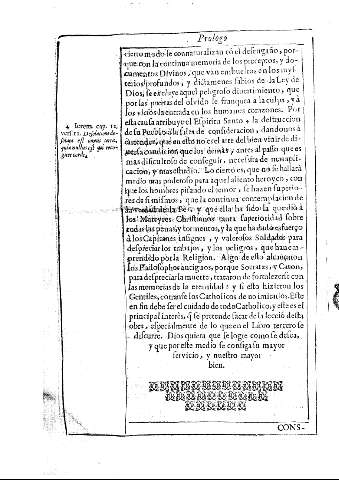 Prologo
cierto modo se connaturaliza cõ el desengaño, por-
que con la continua memoria de los preceptos, y do-
cumentos Divinos, que van embueltos en los mys-
terios profundos, y dictamenes fixos de la Ley de
Dios, se excluye aquel peligroso divertimiento, que
por las puertas del olvido le franquea a la culpa, y à
los vicios la entrada en los humanos corazones. Por
esta causa atribuye el Espiritu Santo 4 la destruccion
de su Pueblo à la falta de consideracion, dandonos à
entender, que en esto no es el arte del bien vivir de di-
versa condicion que los demàs; antes al passo que es
mas dificultoso de conseguir, necessita de mas apli-
cacion, y mas estudio. Lo cierto es, que no se hallarà
medio mas poderoso para aquel aliento heroyco, con
que los hombres pisando el temor, se hazen superio-
res de si mismos, que la continua contemplacion de
la verdad de la Fee, y que ella ha sido la que diò à
los Martyres Christianos tanta superioridad sobre
todas las penas, y tormentos, y la que ha dado esfuerço
à los Capitanes insignes, y valerosos Soldados para
despreciar los trabajos, y los peligros, que han em-
prendido por la Religion. Algo de esto alcançaron
los Philosophos antiguos, porque Socrates, y Caton,
para despreciar la muerte, trataron de fortalecerse con
las memorias de la eternidad: y si esto hizieron los
Gentiles, correrse los Catholicos de no imitarlos. Este
en fin debe ser el cuidado de todo Catholico, y este es el
principal interès, q̃ se pretende sacar de la lecciõ desta
obra, especialmente de lo que en el Libro tercero se
discurre. Dios quiera que se logre como se desea,
y que por este medio se consiga su mayor
servicio, y nuestro mayor
bien.
4 Ierem. cap. 12.
vers. 11. Desolatione de-
solata est omnis terra,
quia nullus est qui reco-
git corde.
CONS-